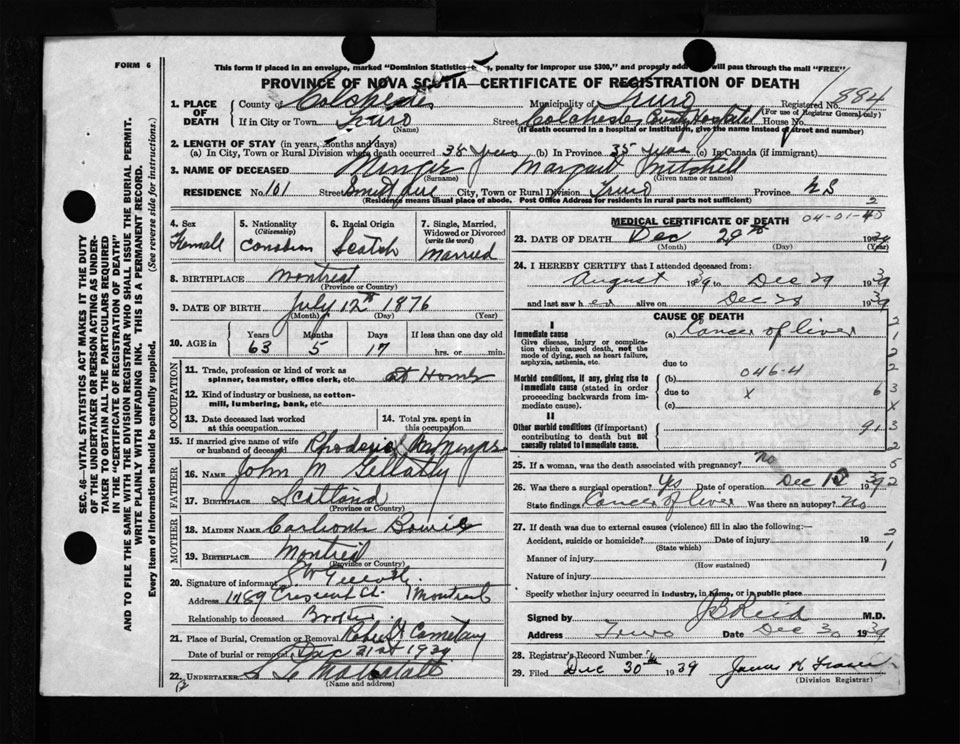 FORM 6
This form if placed in an envelope, marked "Dominion Statistics-Free, penalty for improper use $300," and properly addressed will pass through the mail "FREE"
PROVINCE OF NOVA SCOTIA—CERTIFICATE OF REGISTRATION OF DEATH
SEC. 46—VITAL STATISTICS ACT MAKES IT THE DUTY
OF THE UNDERTAKER OR PERSON ACTING AS UNDER-
TAKER TO OBTAIN ALL THE PARTICULARS REQUIRED
IN THE "CERTIFICATE OF REGISTRATION OF DEATH"
AND TO FILE THE SAME WITH THE DIVISION REGISTRAR WHO SHALL ISSUE THE BURIAL PERMIT.
WRITE PLAINLY WITH UNFADING INK. THIS IS A PERMANENT RECORD.
Every item of Information should be carefully supplied. (See reverse side for instructions.)
1. PLACE OF DEATH County of Colchester Municipality of Truro Registered No. 994
(For use of Registrar General only)
If in City or Town Truro Street Colchester County Hospital House No.
(Name) (If death occurred in a hospital or institution, give the name instead of street and number)
2. LENGTH OF STAY (in years, months and days)
(a) In City, Town or Rural Division where death occurred 38 years (b) In Province 35 years (c) In Canada (if immigrant)
3. NAME OF DECEASED Margaret Mitchell
(Surname) (Given name or names)
RESIDENCE No. 101 Street City, Town or Rural Division Truro Province N S
(Residence means usual place of abode. Post Office Address for residents in rural parts not sufficient) 2
4. Sex Female
5. Nationality (Citizenship) Canadian
6. Racial Origin Scotch
7. Single, Married, Widowed or Divorced (write the word) Married
8. BIRTHPLACE Montreal
(Province or Country)
9. DATE OF BIRTH July 12th 1876
(Month) (Day) (Year)
10. AGE in Years 63 Months 5 Days 17 If less than one day old hrs. or min.
OCCUPATION
11. Trade, profession or kind of work as spinner, teamster, office clerk, etc. at Home
12. Kind of industry or business, as cotton-mill, lumbering, bank, etc.
13. Date deceased last worked at this occupation
14. Total yrs. spent in this occupation
15. If married give name of wife or husband of deceased
FATHER
16. NAME John M Gellatly
17. BIRTHPLACE Scotland
(Province or Country)
MOTHER
18. MAIDEN NAME Bowie
19. BIRTHPLACE Montreal
(Province or Country)
20. Signature of informant
Address Crescent St. Montreal
Relationship to deceased Brother
21. Place of Burial, Cremation or Removal Cemetary
Date of burial or removal Dec 31st 1939
22. UNDERTAKER
(Name and address)
MEDICAL CERTIFICATE OF DEATH
04-01-40
23. DATE OF DEATH Dec 29th 1939
(Month) (Day) (Year)
24. I HEREBY CERTIFY that I attended deceased from:
August 1939 to Dec 29 1939
and last saw h er alive on Dec 28 1939
CAUSE OF DEATH
I
Immediate cause
Give disease, injury or complication which caused death, not the mode of dying, such as heart failure, asphyxia, asthenia, etc.
(a) Cancer of liver
due to
046-4
Morbid conditions, if any, giving rise to immediate cause (stated in order proceeding backwards from immediate cause).
(b)
due to x 6
(c)
II
Other morbid conditions (if important) contributing to death but not causally related to immediate cause.
91
25. If a woman, was the death associated with pregnancy? no
26. Was there a surgical operation? Yes Date of operation Dec 15 1939
State findings Cancer of liver Was there an autopsy? No
27. If death was due to external causes (violence) fill in also the following:—
Accident, suicide or homicide? Date of injury 19
(State which)
Manner of injury
(How sustained)
Nature of injury
Specify whether injury occurred in Industry, in home, or in public place
Signed by J B Reid M.D.
Address Truro Date Dec 30 1939
28. Registrar's Record Number
29. Filed Dec 30th 1939 James H Fraser
(Division Registrar)